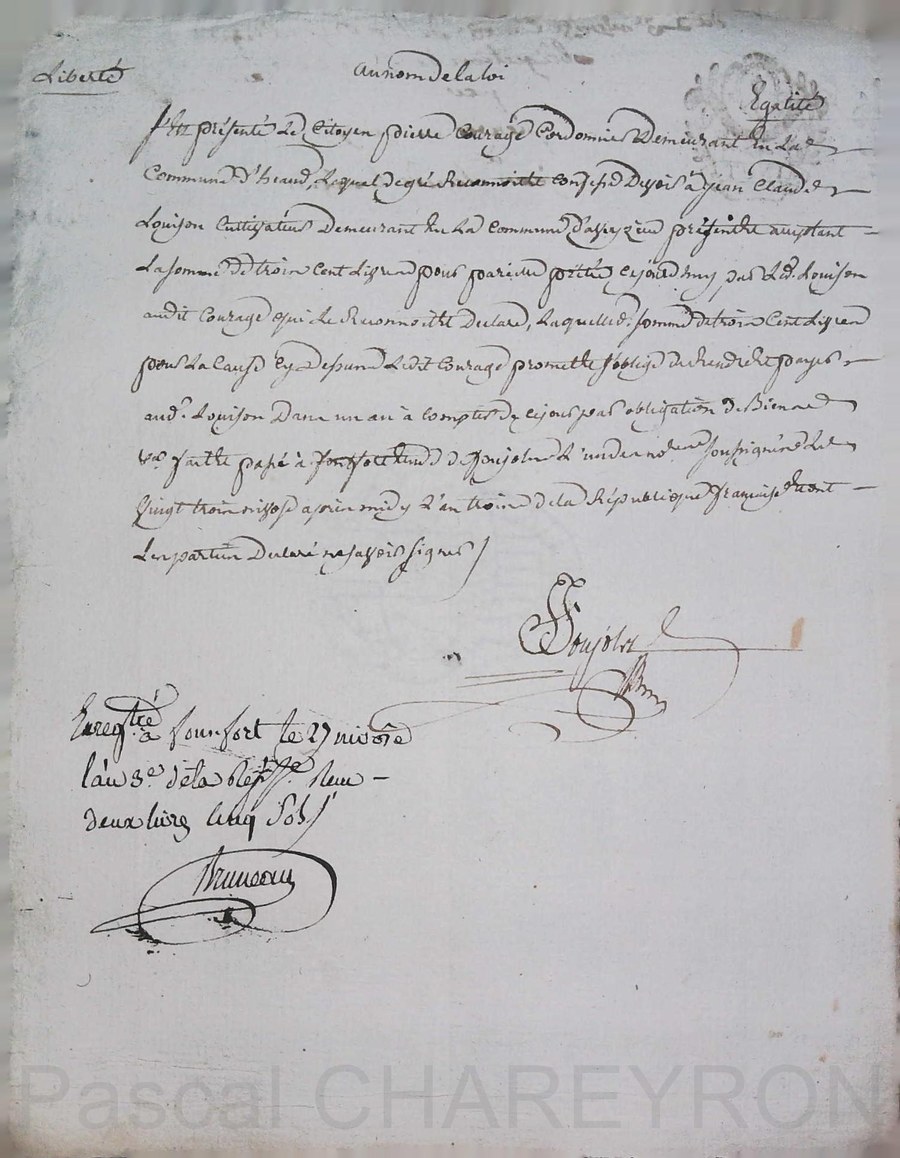 Liberté
au nom de la loi
Egalité
S'est présenté Le Citoyen pierre Courage Cordonnier Demeurant En La
Commune d' Lequel de gré Reconnoitre Confesse Devoir à jean Claude
Louison Cultivateur Demeurant En La Commune présent acceptant
La somme de trois Cent Livres pour pareille prêtée ce jourdhuy par Led. Louison
audit Courage qui Le Reconnoitre Declare, Laquelle d. somme de trois Cent Livres
pour La Cause Cy Dessus Ledit Courage promet s'oblige de Rendre et payer
aud. Louison Dans un an à Compter de ce jour par obligation de Biens
Vx. fait et passé à de soussigné Le
Vingt trois nivose après midy L'an trois de la République française et ont
Les parties Declaré ne savoir signer
Enregtré à le 27 nivose
l'an 3e de la Rep. f.se Reçu
deux livres Cinq Sols
Bruneau
Pascal CHAREYRON